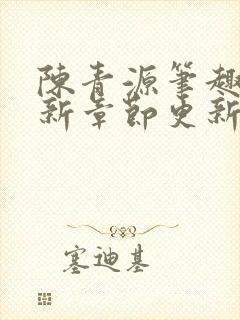 陳青源筆趣
新章節更新
塞迪基